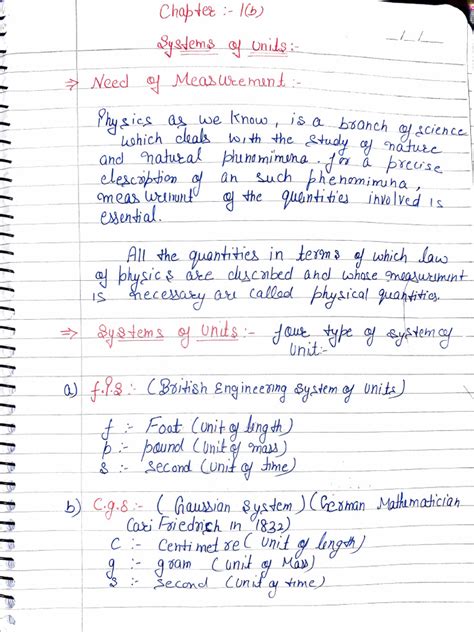 Chapter :- 1(b)
Systems of Units:-
⇒ Need of Measurement :-
Physics as we know, is a branch of science
which deals with the study of nature
and natural phenomimena. for a precise
description of an such phenomimena,
measurement of the quantities involved is
essential.
All the quantities in terms of which law
of physics are described and whose measurement
is necessary are called physical quantities.
⇒ Systems of Units:- four type of system of
Unit:-
a) f.P.S :- (British Engineering System of Units)
f :- Foot (unit of length)
p :- pound (Unit of mass)
s :- Second (Unit of time)
b) C.g.S :- (Gaussian System) (German Mathematician
Carl Friedrich in 1832)
C :- Centimetre (Unit of length)
g :- gram (Unit of Mass)
s :- Second (Unit of time)